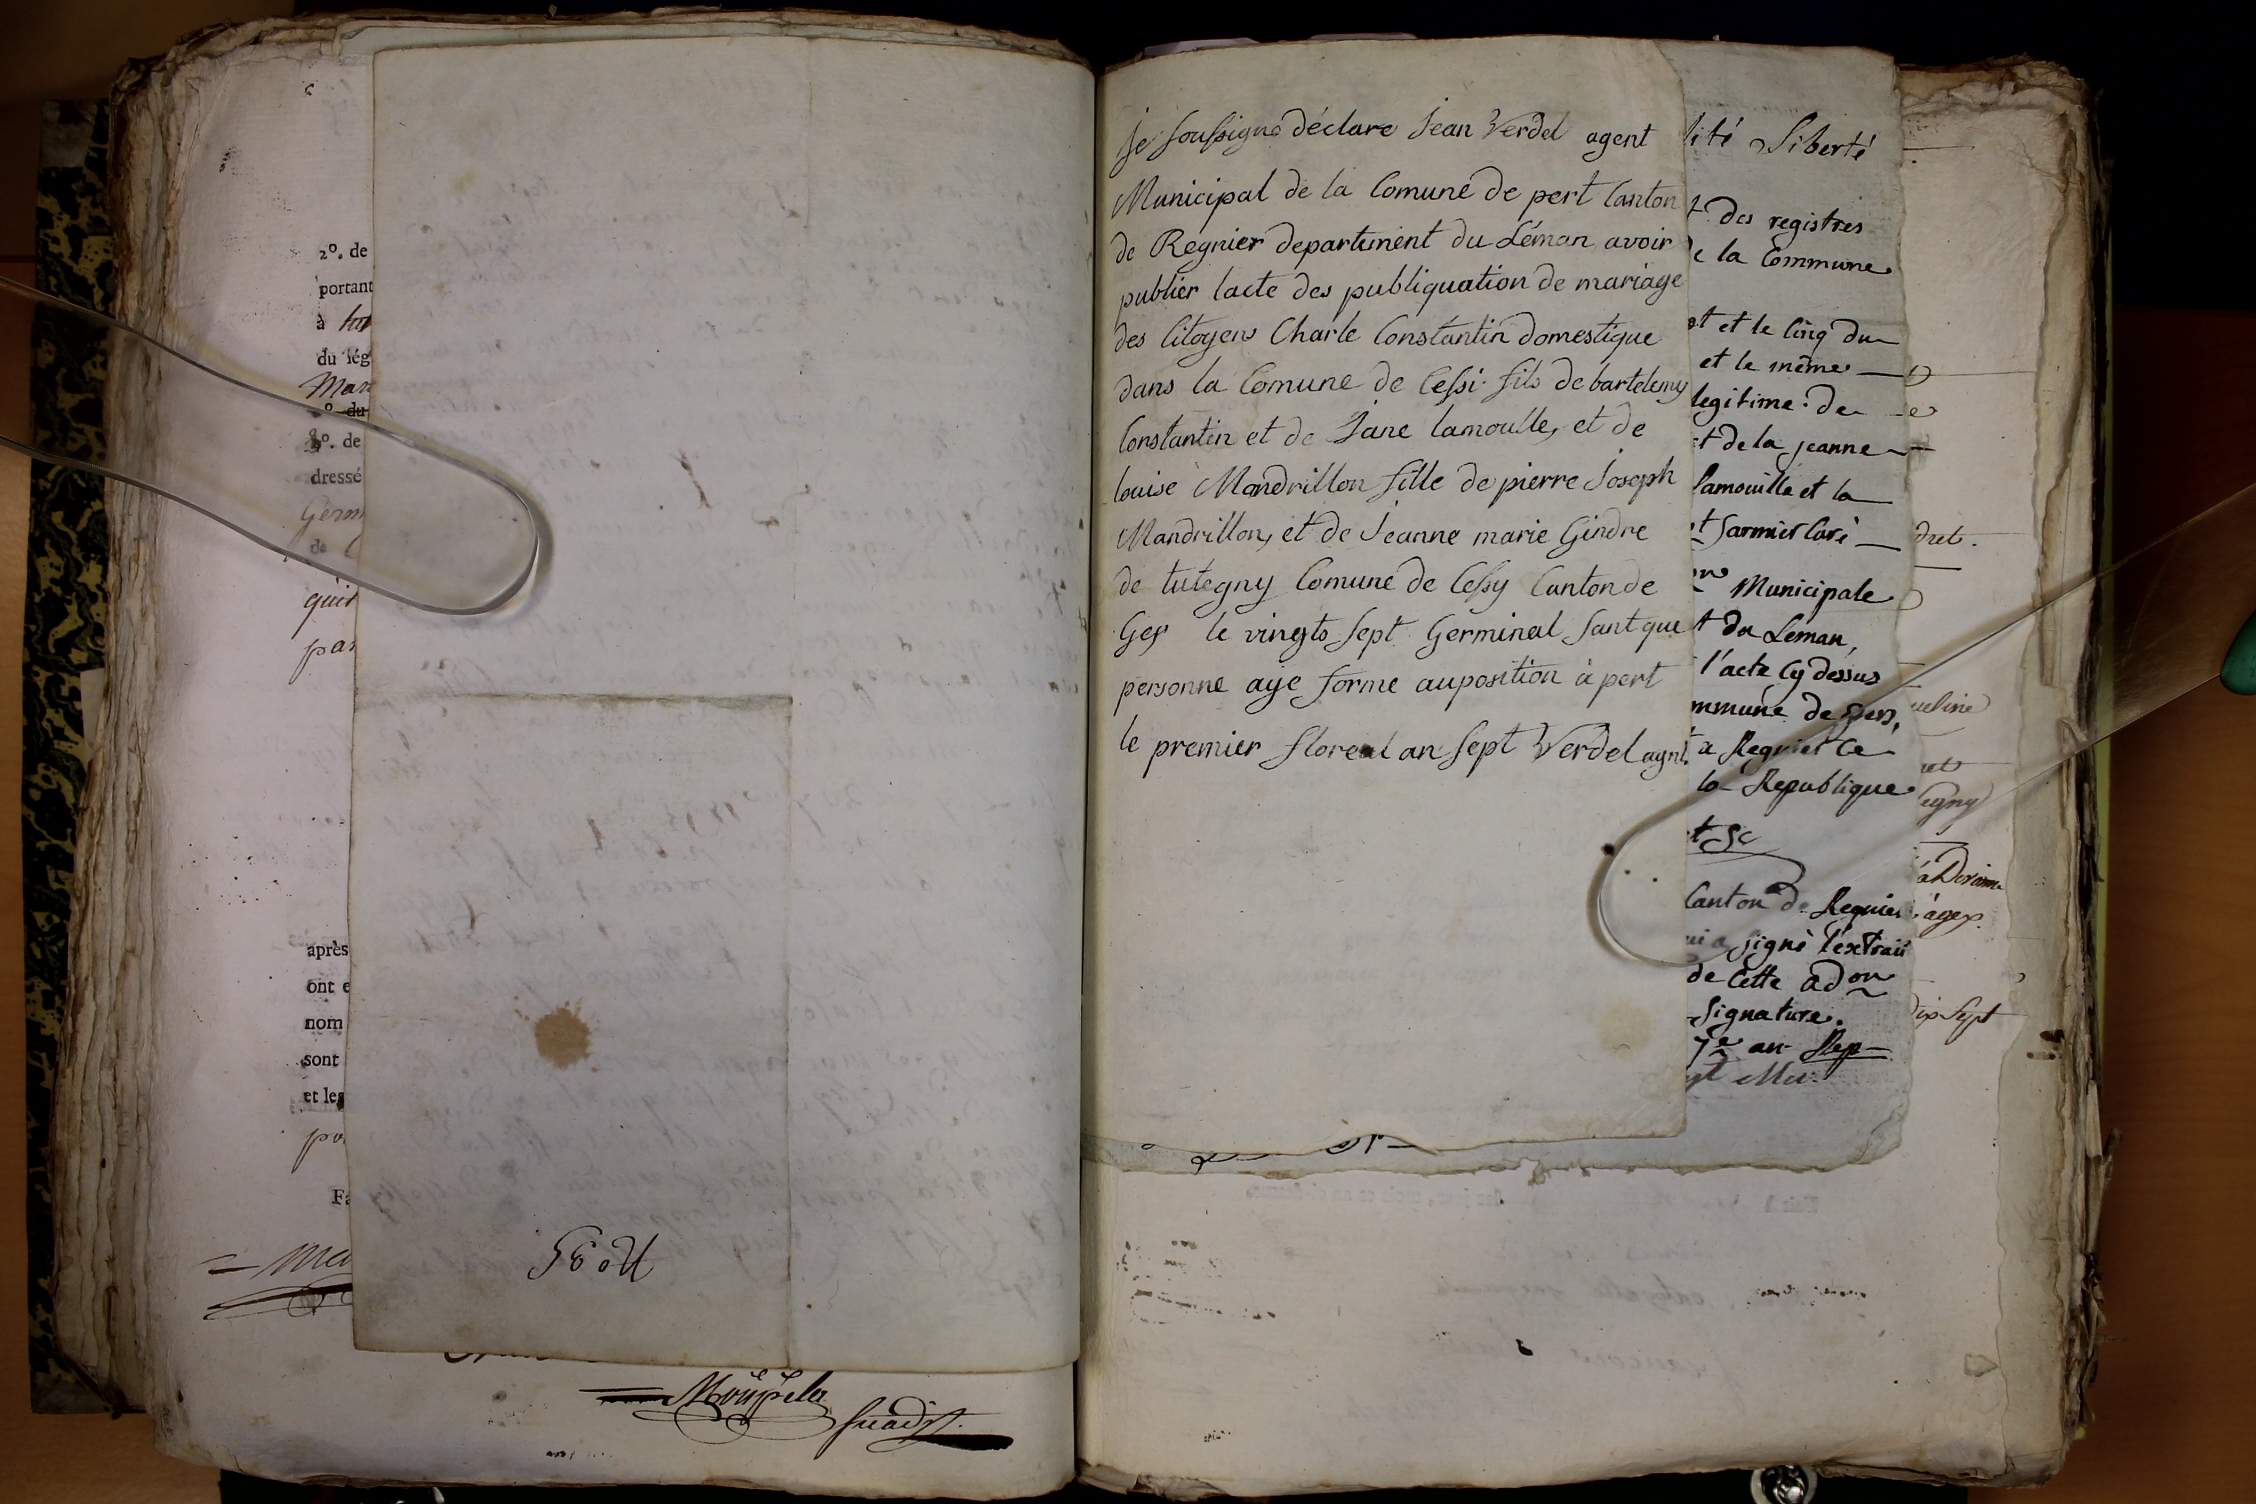 2°. de
portant
à
du lég
Mar
2° du
3°. de
dressé
Germ
de
qu'it
par
après
ont e
nom
sont
et les
po
Fa
je soussigne déclare Jean Verdel agent
Municipal de la Comune de pert Canton
de Regnier departement du Léman avoir
publier lacte des publiquation de mariage
des Citoyens Charle Constantin domestique
dans la Comune de Cessi fils de bartelemy
Constantin et de Jane lamoulle, et de
louise Mandrillon fille de pierre Joseph
Mandrillon, et de Jeanne marie Gindre
de tutegny Comune de Cessy Canton de
Gex le vingts sept Germinal sant que
personne aye forme auposition à pert
le premier floreal an sept Verdel agnt.
lité Liberté
t des registres
de la Commune
et le Cinq du
et le même
legitime de
et de la jeanne
lamouille et la
Municipale
t du Léman,
l'acte Cy dessus
mmune de Pers,
a Regnier Ce
la Republique
Canton de Regnier
signé l'extrait
de Cette adon
Signature.
7e an Rep
dret.
ueline
egny
à gex.
dix Sept